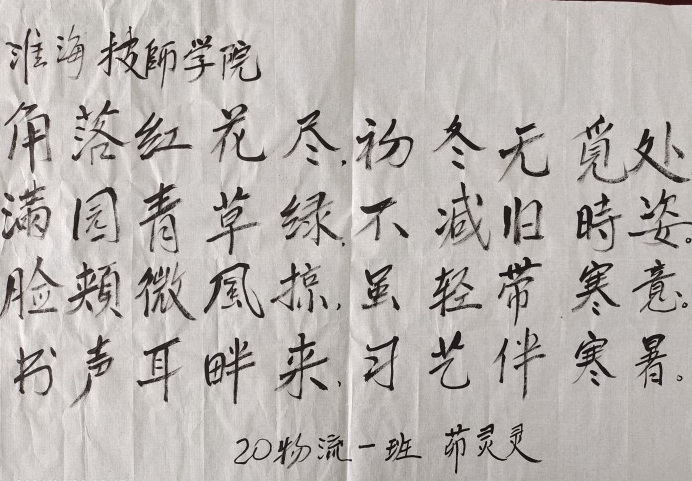 淮海技師学院
角落红花尽,初冬无觅处
满园青草绿,不减旧時姿。
脸颊微風掠,虽轻带寒意。
书声耳畔来,习艺伴寒暑。
20物流一班 茆灵灵